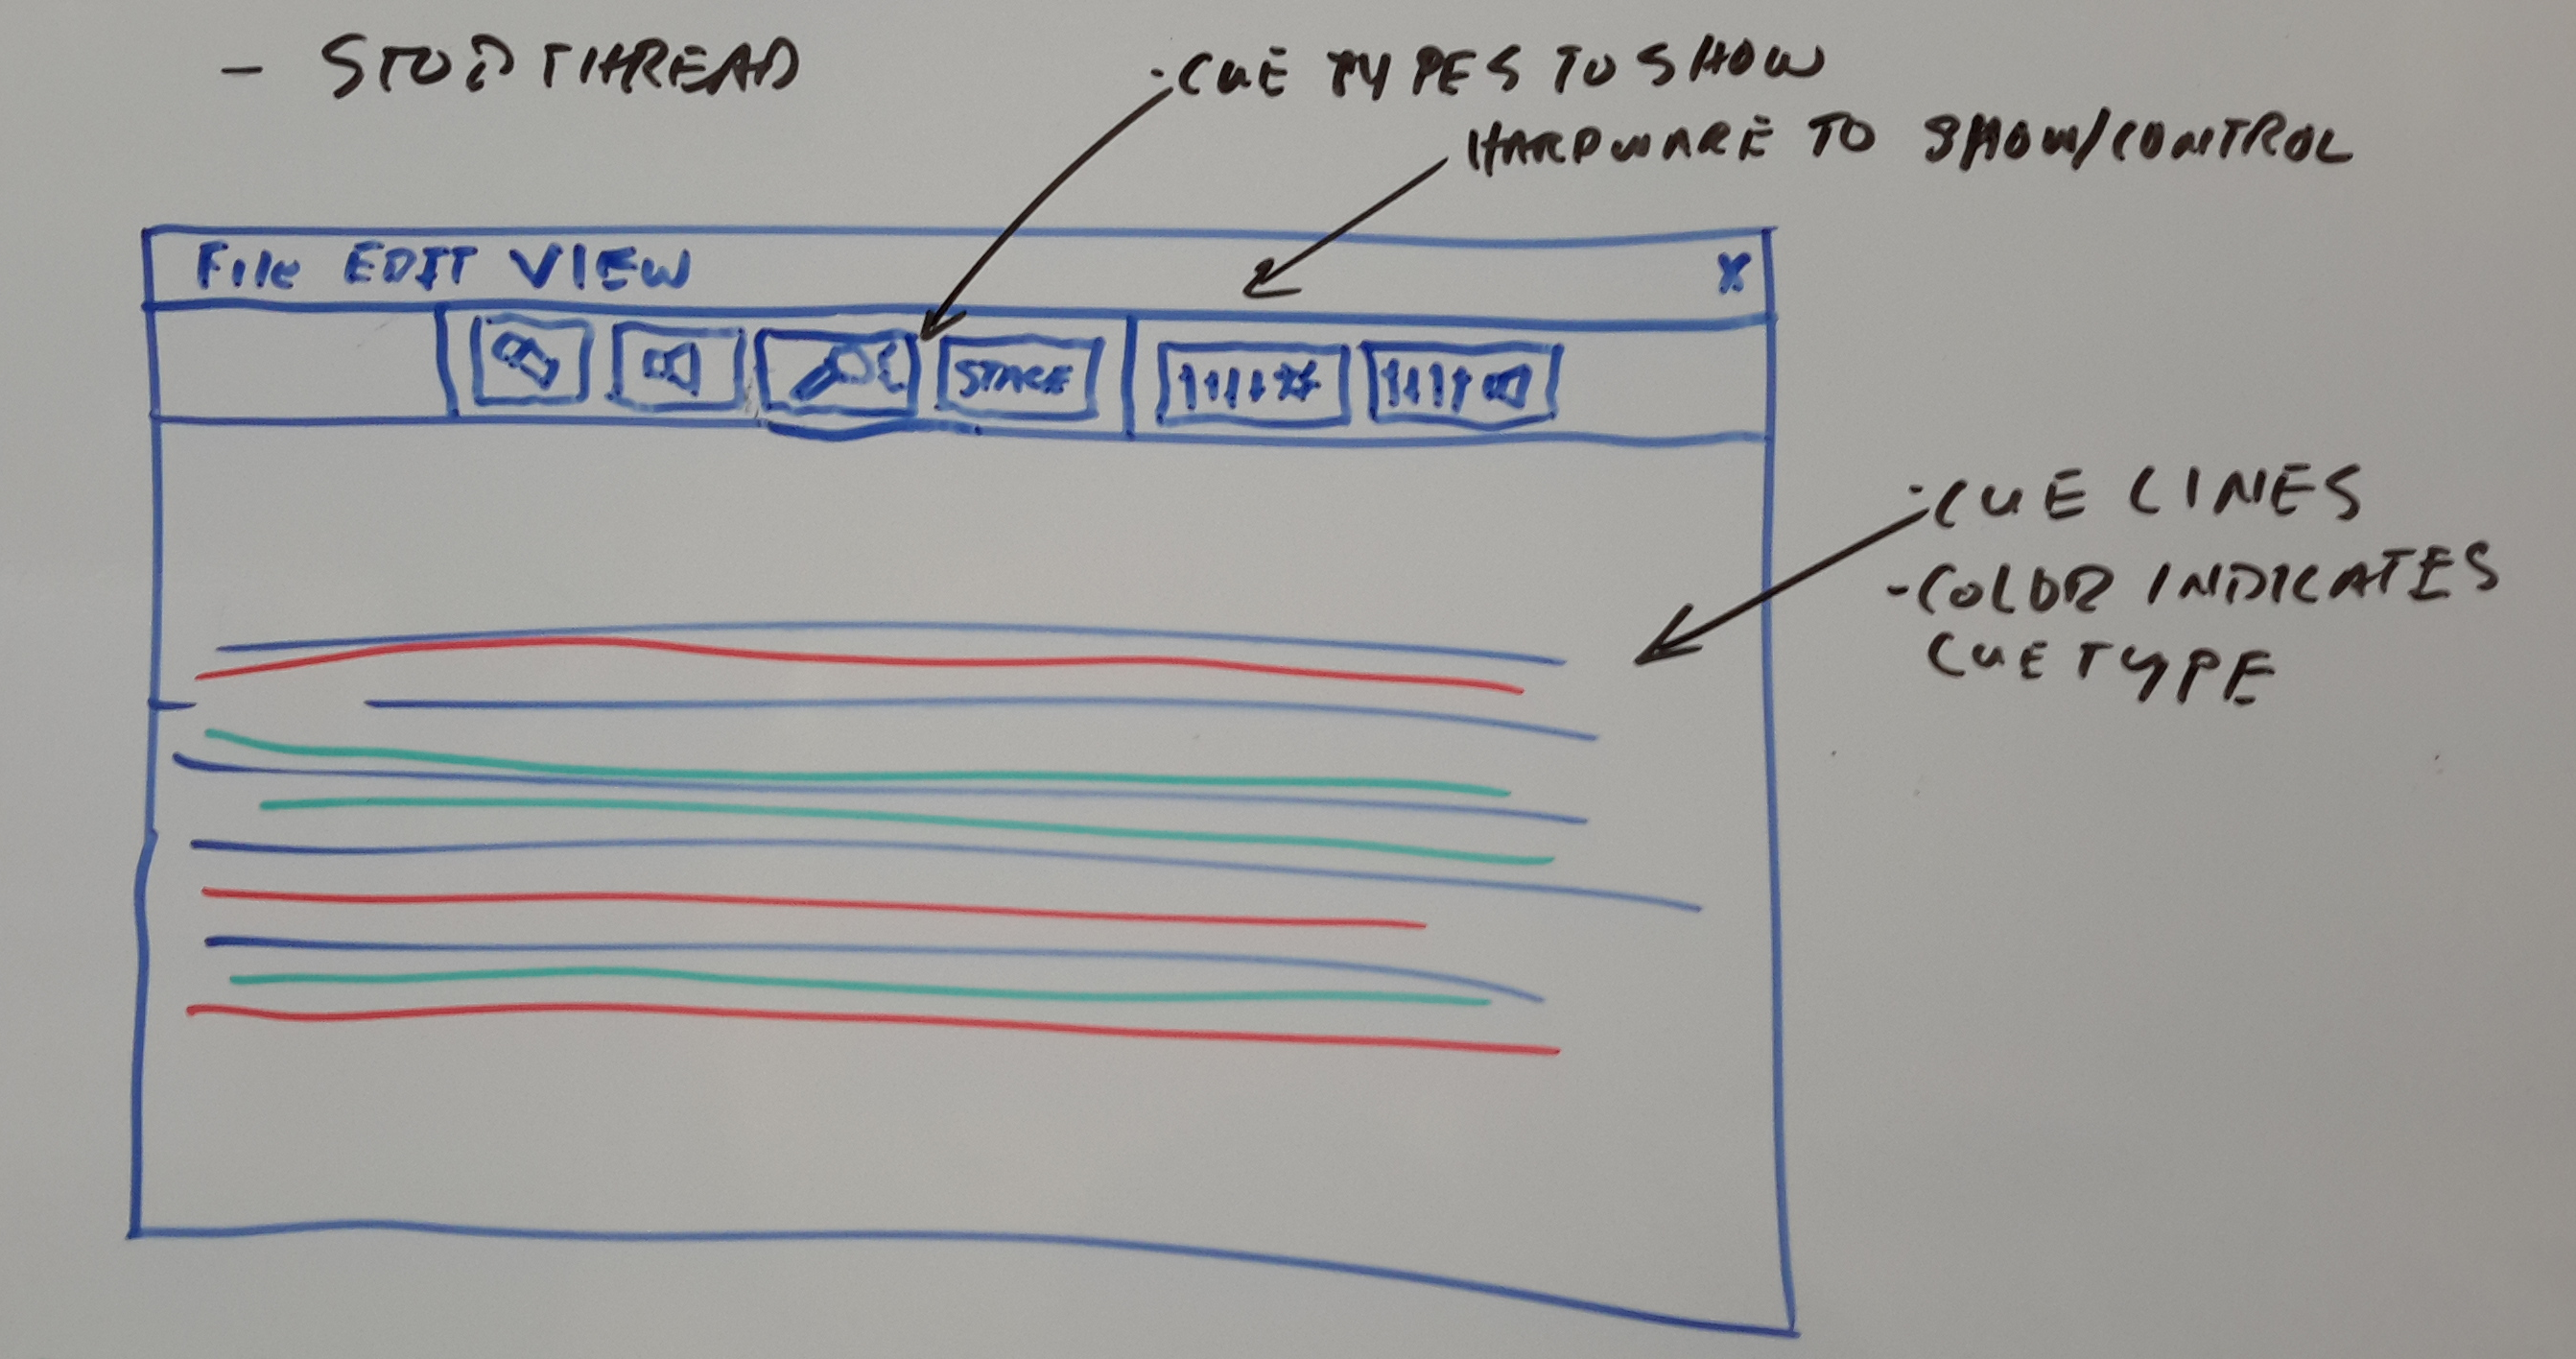 - STOP THREAD
· CUE TYPES TO SHOW
HARDWARE TO SHOW/CONTROL
File EDIT VIEW X
STAGE
· CUE LINES
- COLOR INDICATES
CUE TYPE